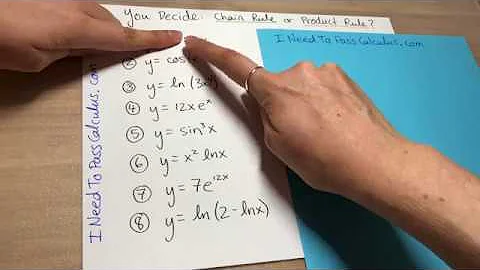 You Decide: Chain Rule or Product Rule?
I Need To Pass Calculus.com
② y = cos
③ y = ln (3
④ y = 12xeˣ
⑤ y = sin³x
⑥ y = x² lnx
⑦ y = 7e¹²ˣ
⑧ y = ln (2 - lnx)
I Need To Pass Calculus.com